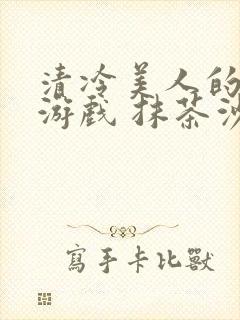 清冷美人的
游戲 抹茶沙
寫手卡比獸